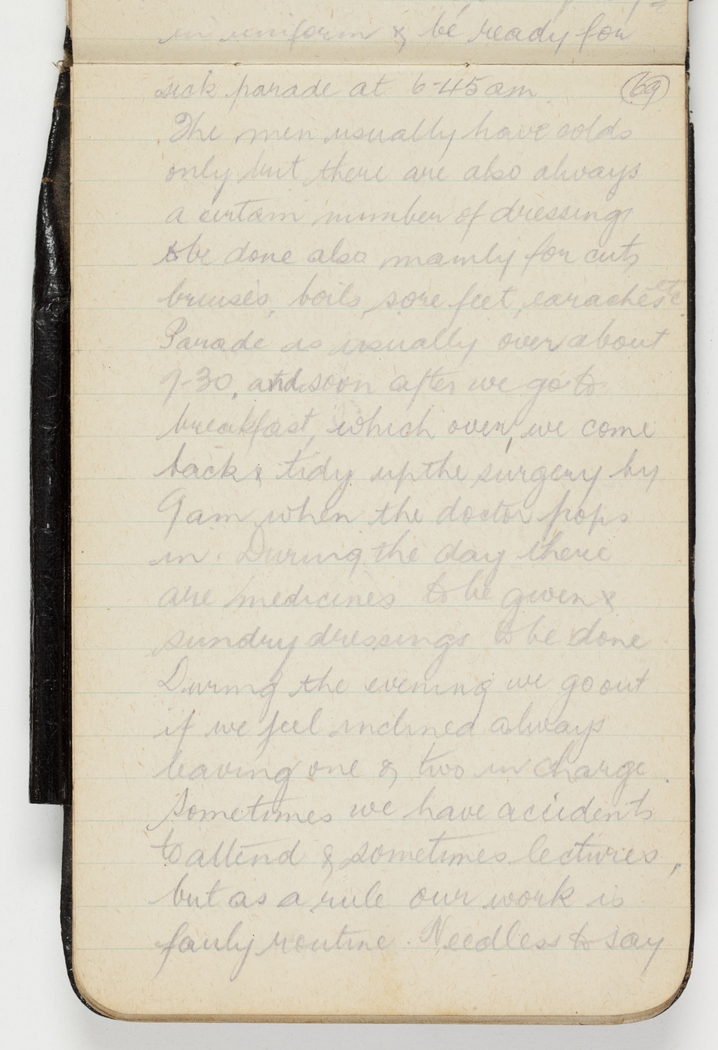 in uniform & be ready for
sick parade at 6-45am (69)
The men usually have colds
only but there are also always
a certain number of dressings
to be done also mainly for cuts
bruises, boils, sore feet, earaches etc
Parade is usually over about
7-30, and soon after we go to
breakfast, which over, we come
back & tidy up the surgery by
9am when the doctor pops
in. During the day there
are medicines to be given &
sundry dressings to be done
During the evening we go out
if we feel inclined always
leaving one or two in charge
Sometimes we have accidents
to attend & sometimes lectures,
but as a rule our work is
fairly routine. Needless to say